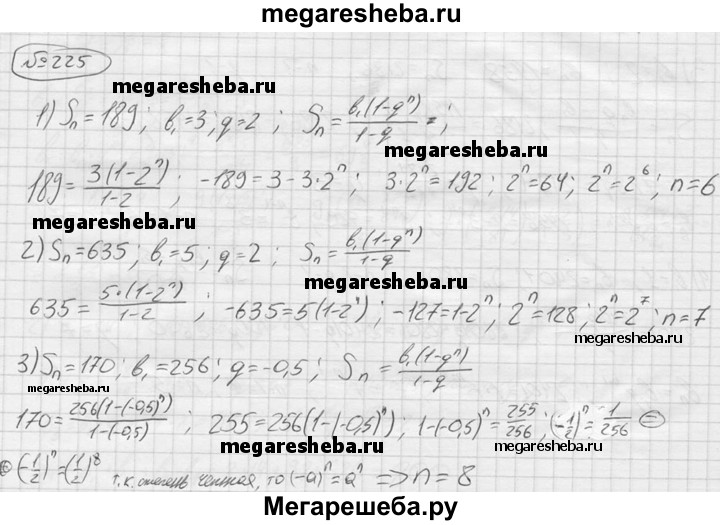 megaresheba.ru
№225
megaresheba.ru
1) Sₙ=189; b₁=3; q=2; Sₙ=b₁(1-qⁿ)/1-q = ;
megaresheba.ru
189=3(1-2ⁿ)/1-2; -189=3-3·2ⁿ; 3·2ⁿ=192; 2ⁿ=64; 2ⁿ=2⁶; n=6
2) Sₙ=635; b₁=5; q=2; Sₙ=b₁(1-qⁿ)/1-q
megaresheba.ru
635=5·(1-2ⁿ)/1-2; -635=5(1-2ⁿ); -127=1-2ⁿ; 2ⁿ=128; 2ⁿ=2⁷; n=7
3) Sₙ=170; b₁=256; q=-0,5; Sₙ=b₁(1-qⁿ)/1-q
megaresheba.ru megaresheba.ru
170=256(1-(-0,5)ⁿ)/1-(-0,5); 255=256(1-(-0,5)ⁿ); 1-(-0,5)ⁿ=255/256; (-1/2)ⁿ=1/256 ⊜
megaresheba.ru
⊜ (-1/2)ⁿ=(1/2)⁸ т.к. степень четная, то (-a)ⁿ=aⁿ => n=8
Мегарешеба.ру